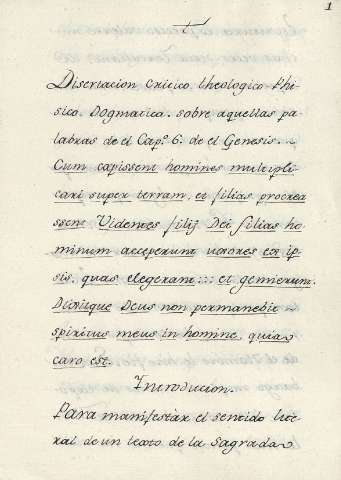 1
Disertacion critico theologico-Phi-
sico. Dogmatica. sobre aquellas pa-
labras de el Cap.º 6. de el Genesis.
Cum cœpissent homines multipli-
cari super terram, et filias procrea
ssent Videntes filij Dei filias ho
minum acceperunt uxores ex ip
sis, quas elegerant::: et genuerunt.
Dixitque Deus non permanebit
spiritus meus in homine, quia
caro, est.
Introducion.
Para manifestar el sentido lite
ral de un texto de la Sagrada